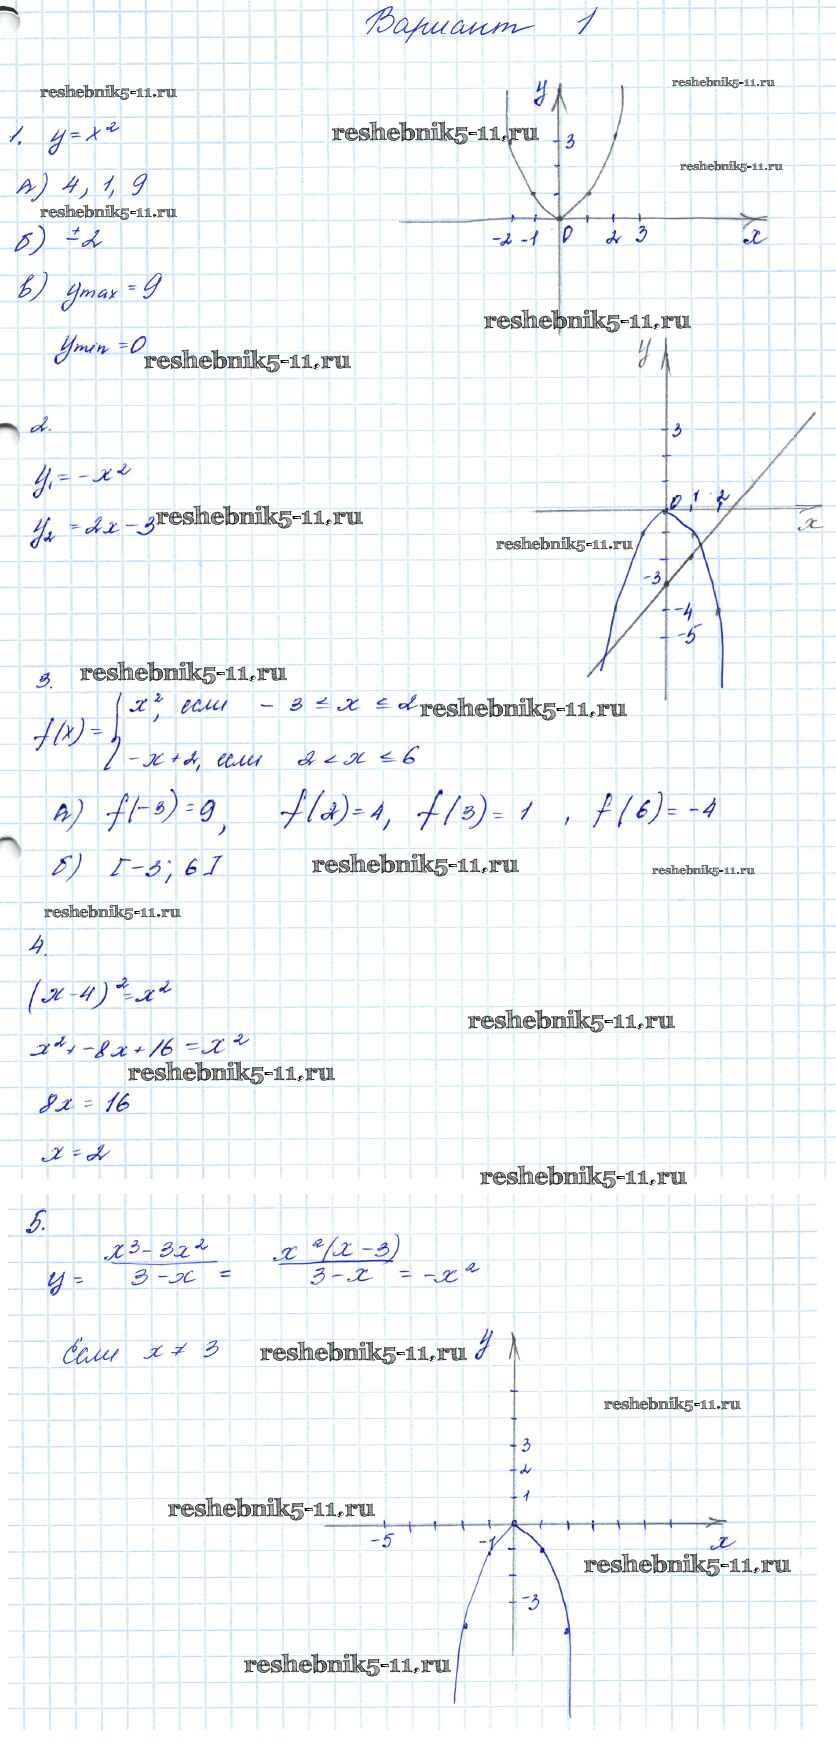 Вариант 1
reshebnik5-11.ru
reshebnik5-11.ru
y
1. y = x²
reshebnik5-11.ru
3
reshebnik5-11.ru
А) 4, 1, 9
reshebnik5-11.ru
б) ±2
-2 -1 0 2 3 x
в) ymax = 9
reshebnik5-11.ru
ymin = 0
reshebnik5-11.ru
y
2.
3
y₁ = -x²
0 1 2
y₂ = 2x - 3
reshebnik5-11.ru
x
reshebnik5-11.ru
-3
-4
-5
3.
reshebnik5-11.ru
f(x) = { x², если - 3 ≤ x ≤ 2
reshebnik5-11.ru
-x + 2, если 2 < x ≤ 6
А) f(-3) = 9, f(2) = 4, f(3) = 1, f(6) = -4
б) [-3; 6]
reshebnik5-11.ru
reshebnik5-11.ru
reshebnik5-11.ru
4.
(x - 4)² = x²
reshebnik5-11.ru
x² + -8x + 16 = x²
reshebnik5-11.ru
8x = 16
x = 2
reshebnik5-11.ru
5.
y = (x³ - 3x²)/(3 - x) = x²(x - 3)/(3 - x) = -x²
Если x ≠ 3
reshebnik5-11.ru
y
reshebnik5-11.ru
3
2
1
reshebnik5-11.ru
-5 -1 x
reshebnik5-11.ru
-3
reshebnik5-11.ru